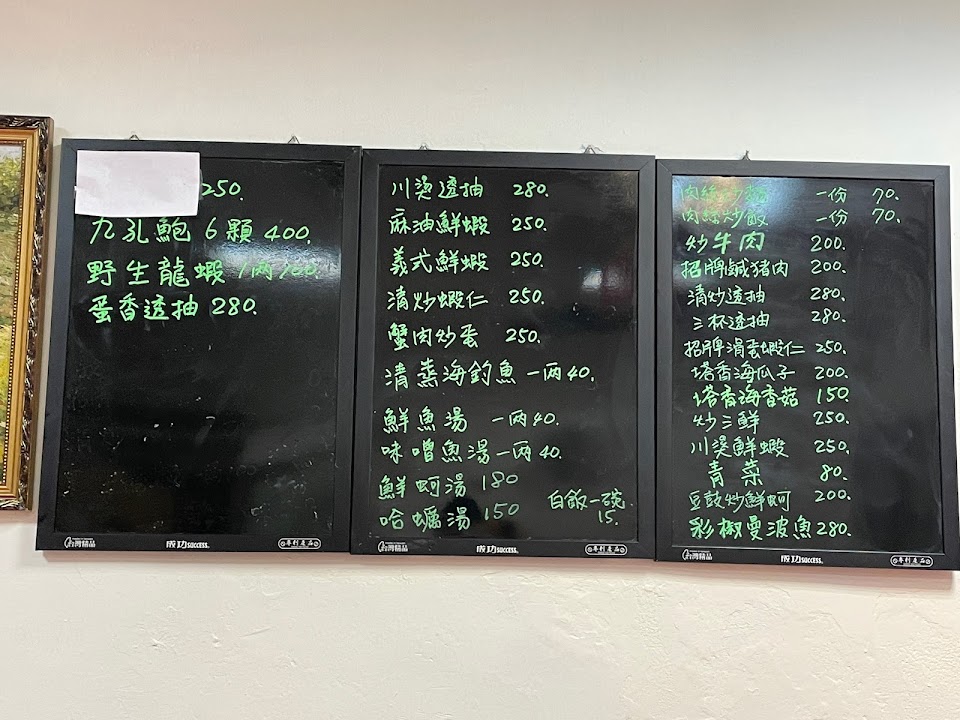 250.
九孔鮑 6顆 400.
野生龍蝦 1兩 100.
蛋香透抽 280.
川燙透抽 280.
麻油鮮蝦 250.
義式鮮蝦 250.
清炒蝦仁 250.
蟹肉炒蛋 250.
清蒸海釣魚 一两40.
鮮魚湯 一两40.
味噌魚湯 一两40.
鮮蚵湯 180
哈蠣湯 150
白飯一碗
15.
肉絲炒麵 一份 70.
肉絲炒飯 一份 70.
炒牛肉 200.
招牌鹹猪肉 200.
清炒透抽 280.
三杯透抽 280.
招牌滑蛋蝦仁 250.
塔香海瓜子 200.
塔香海香菇 150.
炒三鮮 250.
川燙鮮蝦 250.
青菜 80.
豆鼓炒鮮蚵 200.
彩椒曼波魚 280.
台灣精品 成功 SUCCESS. 專利產品
台灣精品 成功 SUCCESS. 專利產品
台灣精品 成功 SUCCESS. 專利產品